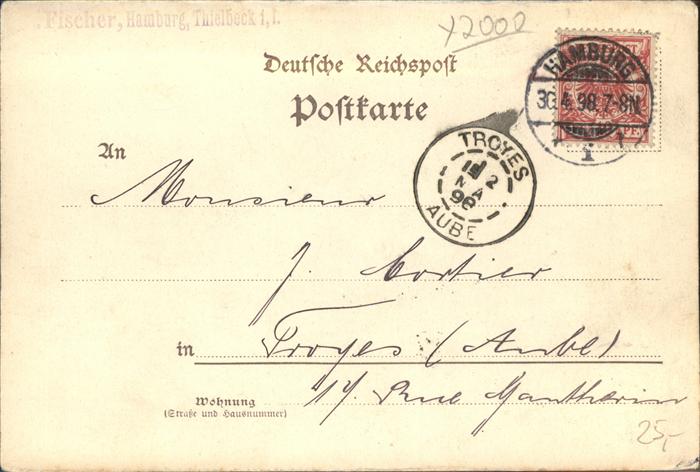 Fischer, Hamburg, Thielbeck i, I.
x2000
Deutsche Reichspost
Postkarte
HAMBURG
30.4.98.7-8N.
1
TROYES
2
98
AUBE
An
Monsieur
J. Cortier
in Troyes (Aube)
Wohnung
(Straße und Hausnummer)
17 Rue
25,-